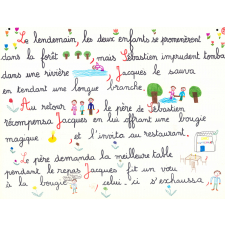 Le lendemain, les deux enfants se promenèrent
dans la forêt, mais Sébastien imprudent tomba
dans une rivière, Jacques le sauva
en tendant une longue branche.
Au retour, le père de Sébastien
récompensa Jacques en lui offrant une bougie
magique et l'invita au restaurant.
Le père demanda la meilleure table
pendant le repas Jacques fit un vœu
à la bougie, celui-ci s'exhaussa,